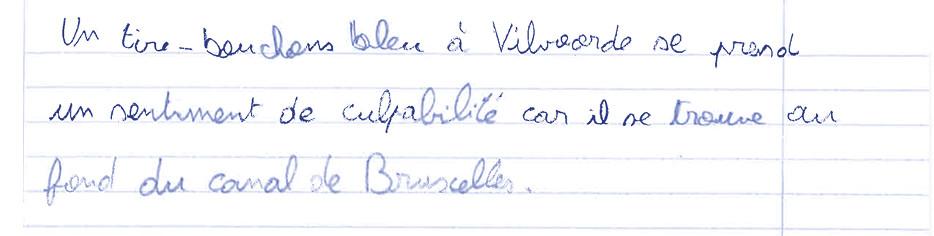 Un tire-bouchons bleu à Vilvoorde se prend
un sentiment de culpabilité car il se trouve au
fond du canal de Bruxelles.